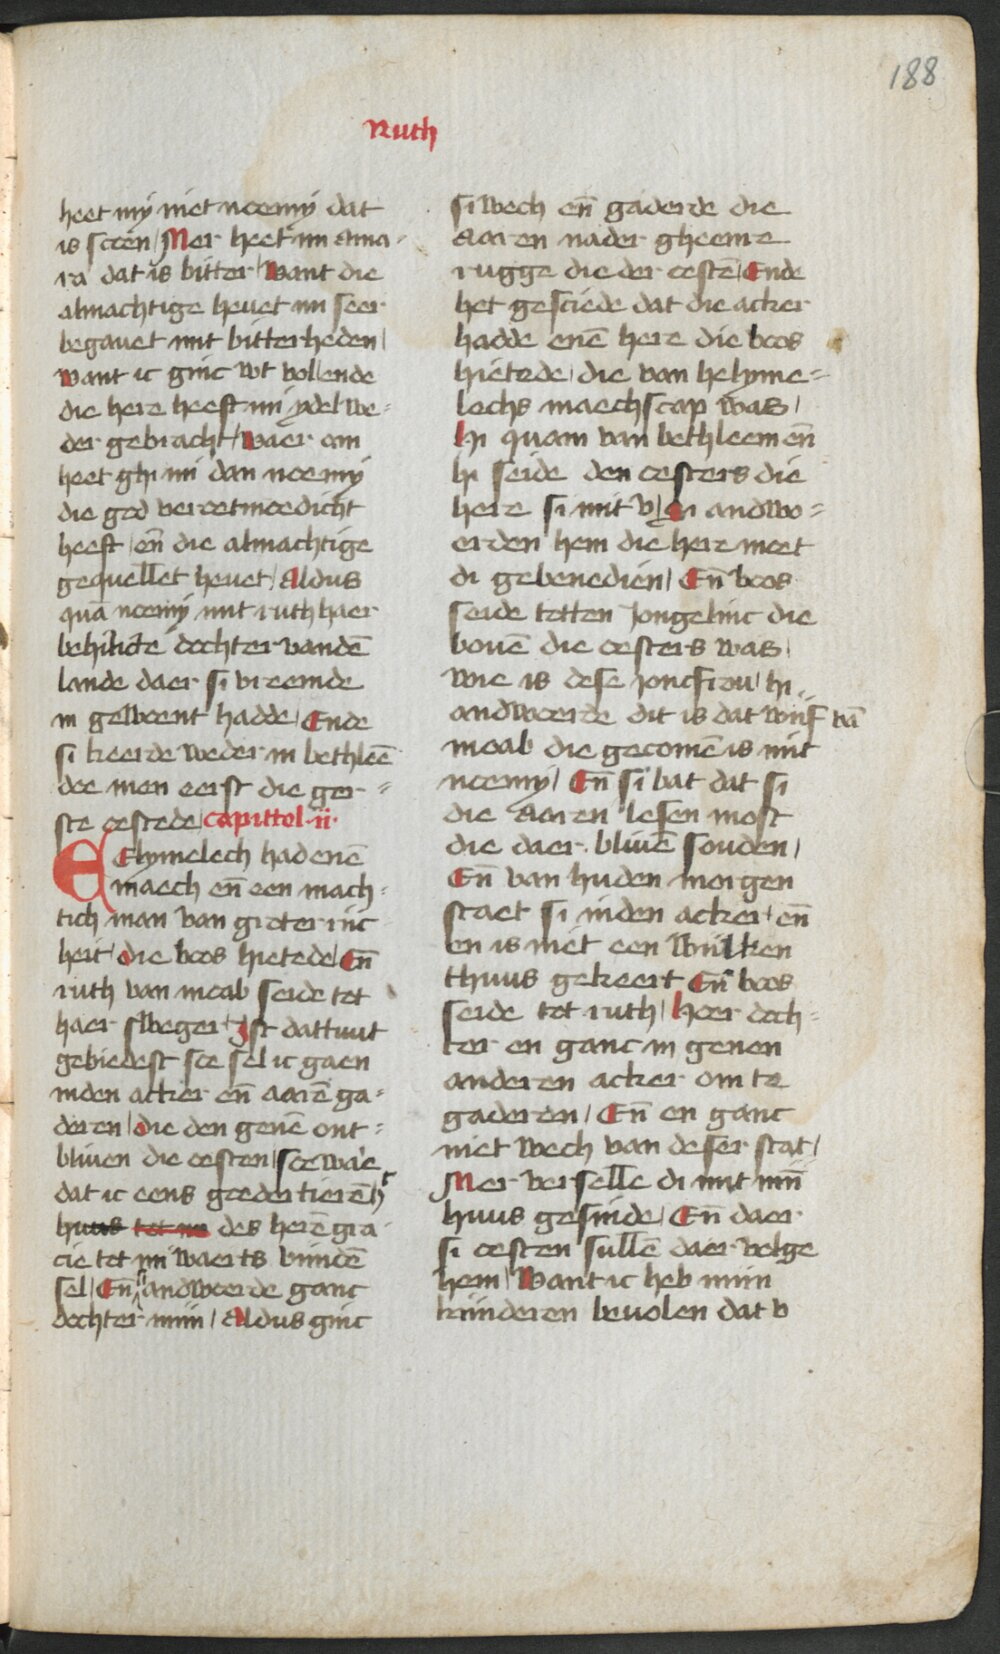 188
Ruth
heet my niet noemy dat
is scoen / Mer heet mi ama-
ra dat is bitter / Want die
almachtige heuet mi seer
begauet mit bitterheden /
Want ic ginc wt vol ende
die here heeft mi ydel we-
der gebracht / waer om
heet ghi mi dan noemy
die god veroetmoedicht
heeft / en̄ die almachtige
gequellet heuet / Aldus
quā noemy mit ruth haer
behilicte dochter vandē
lande daer si vreemde
in gewoent hadde / Ende
si keerde weder in bethleē
doe men eerst die ger-
ste oestede / capittel .ii.
Elymelech had enē
maech en̄ een mach-
tich man van groter riic
heit / die boos hietede / En̄
ruth van moab seide tot
haer sweger / Ist dattuut
gebiedest soe sel ic gaen
inden acker en̄ aarē ga-
deren / die den genē ont-
bliuen die oesten / soe wae
dat ic eens goedertierē h
huus tot mi des herē gra-
cie tot mi waerts vindē
sel / En̄ si andwoerde ganc
dochter miin / Aldus ginc
si wech en̄ gaderde die
Aaren nader gheenre
rugge die der oestē / Ende
het gesciede dat die acker
hadde enē here die boos
hietede / die van helyme-
lechs maechscap was /
Hi quam van bethleem en̄
hi seide den oesters die
here si mit v / Si andwo-
erden hem die here moet
di gebenedien / En̄ boos
seide totten Jongelinc die
bouē die oesters was /
wie is dese joncfrou / hi
andwoerde dit is dat wiif vā
moab die gecomē is mit
noemy / En̄ si bat dat si
die Aaren lesen most
die daer bliuē souden /
En̄ van huden morgen
staet si inden acker / en̄
en is niet een wiilken
thuus gekeert En̄ boos
seide tot ruth / Hoer doch-
ter en ganc in genen
anderen acker om te
gaderen / En̄ en ganc
niet wech van deser stat /
Mer verselle di mit miin
huus gesinde / En̄ daer
si oesten sullē daer volge
hem / Want ic heb miin
kinderen beuolen dat v